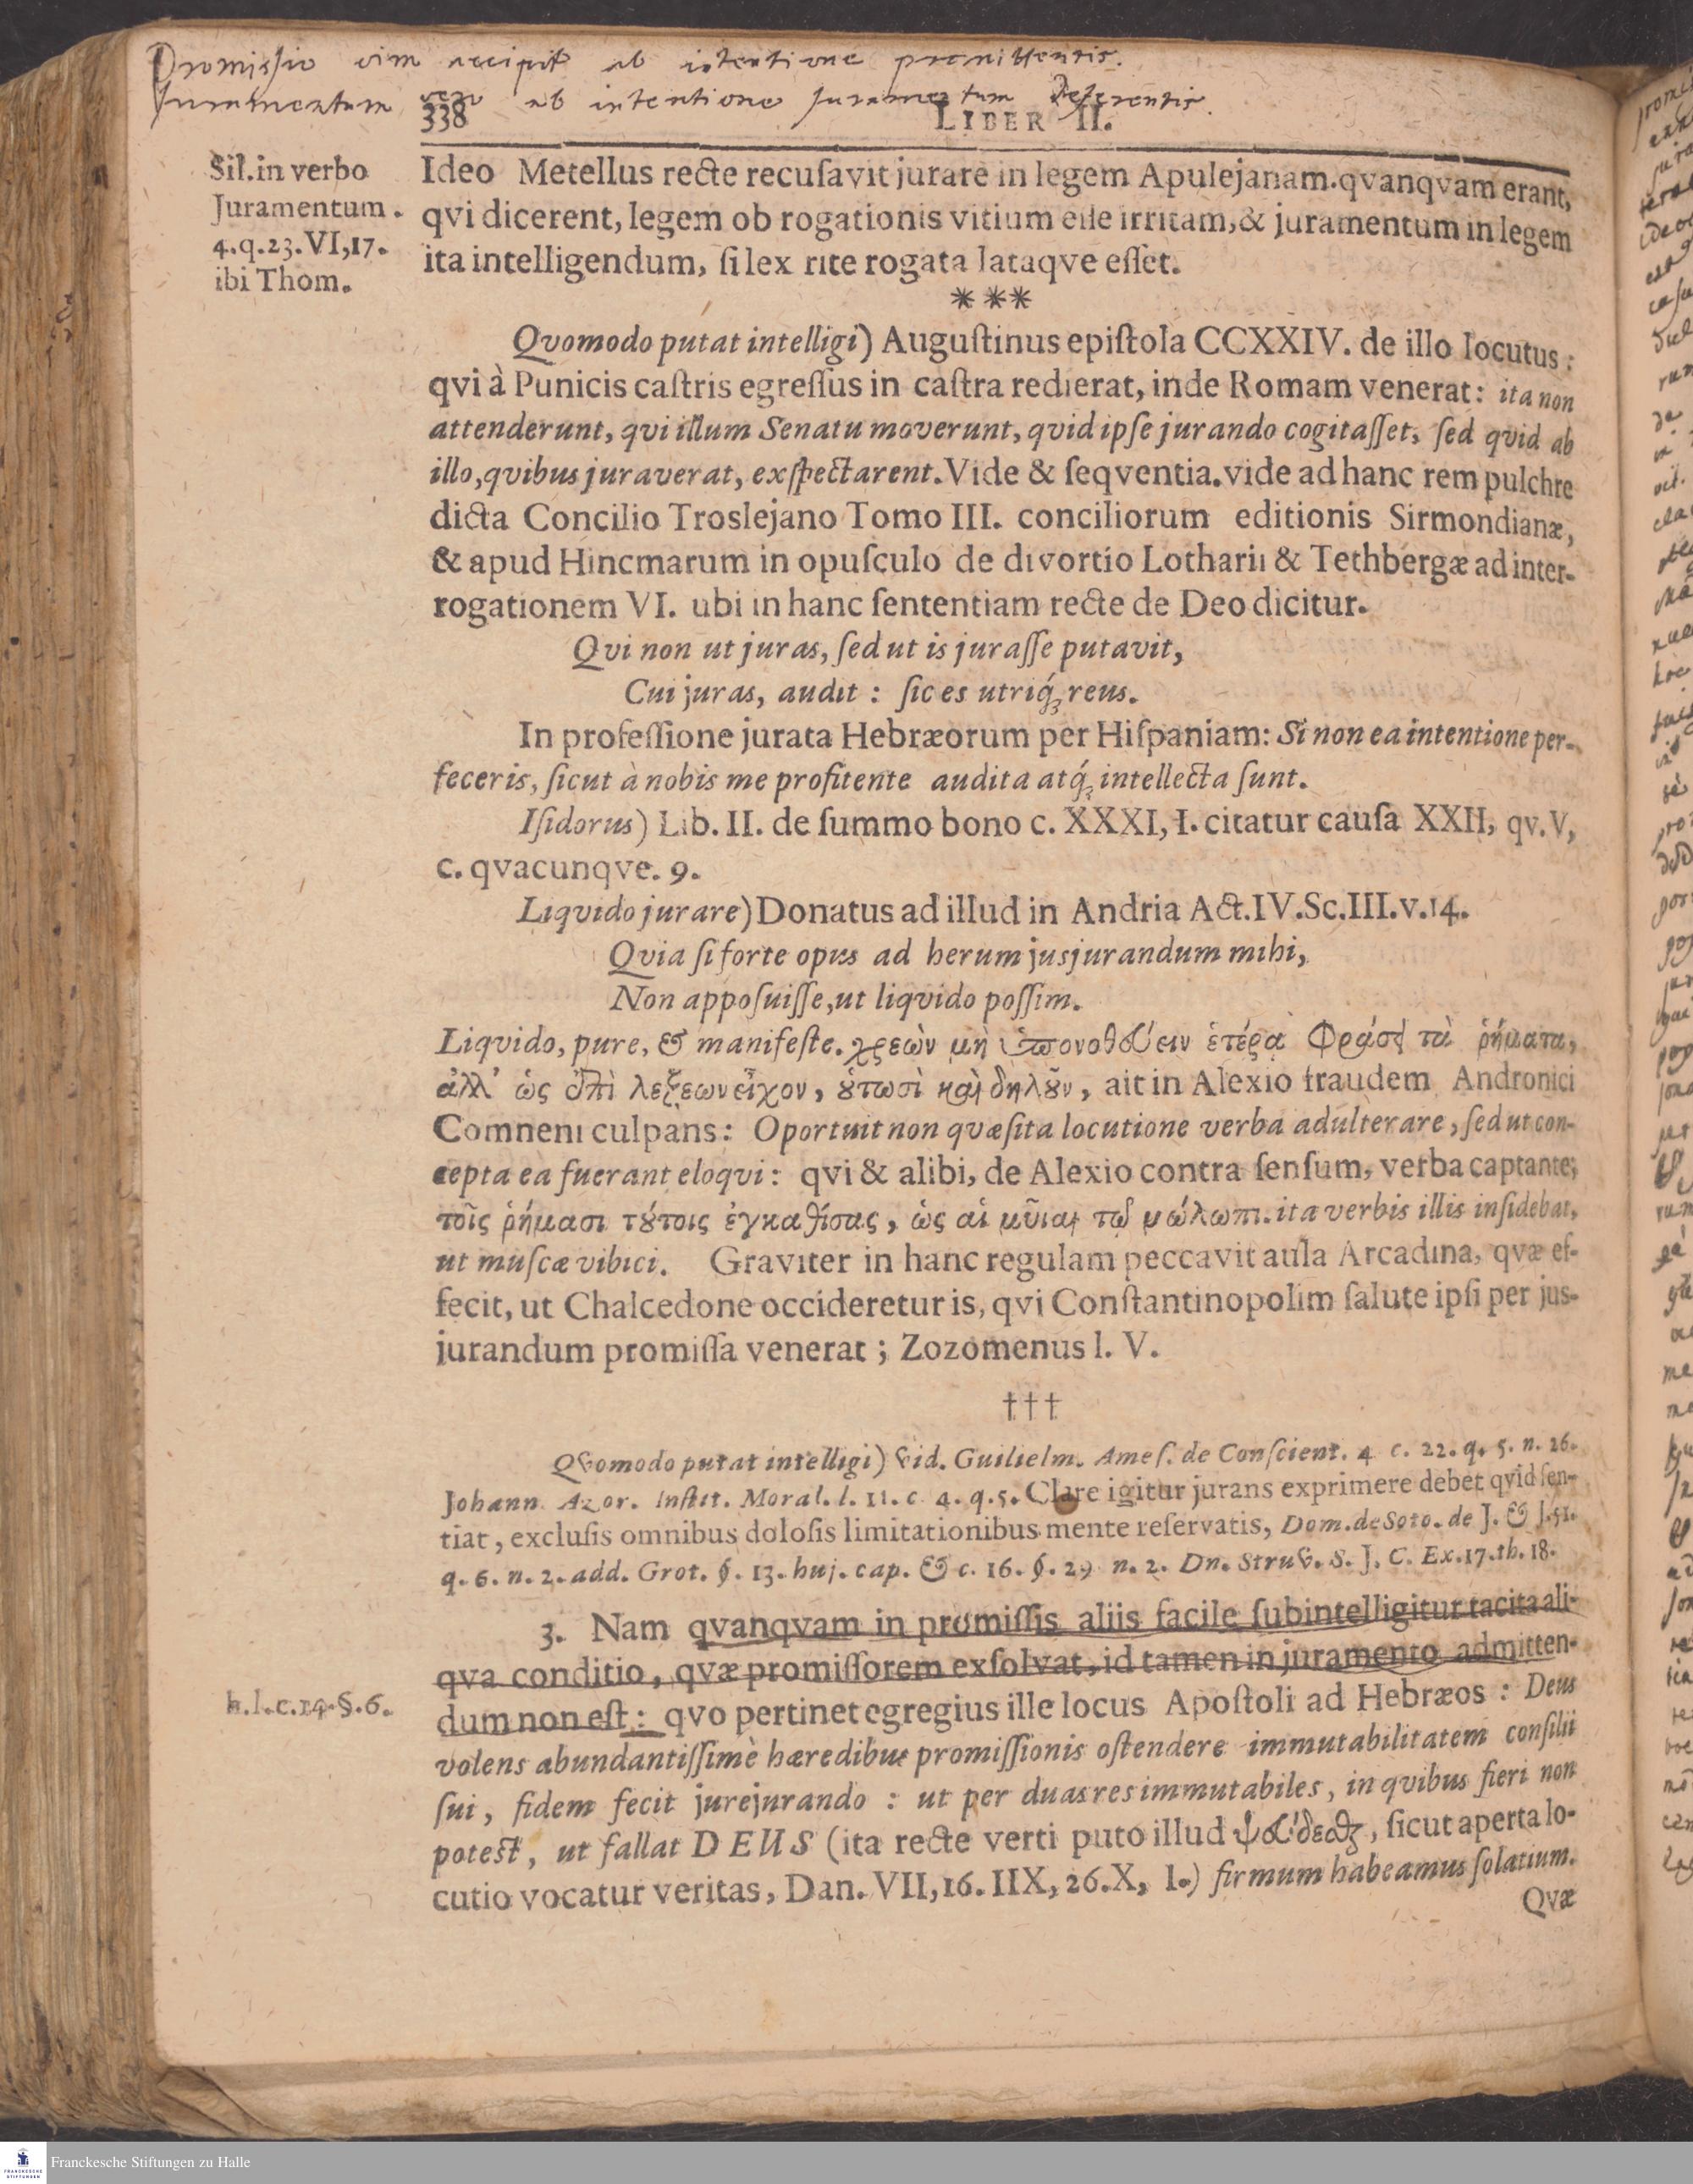 Promissio vim accipit ab intentione promittentis.
Juramentum vero ab intentione Juramentum deferentis.
338 LIBER II.
Sil. in verbo
Juramentum.
4. q. 23. VI, 17.
ibi Thom.
Ideo Metellus recte recuſavit jurare in legem Apulejanam. qvanqvam erant,
qvi dicerent, legem ob rogationis vitium eſſe irritam, & juramentum in legem
ita intelligendum, ſi lex rite rogata lataqve eſſet.
***
Qvomodo putat intelligi) Auguſtinus epiſtola CCXXIV. de illo locutus:
qvi à Punicis caſtris egreſſus in caſtra redierat, inde Romam venerat: ita non
attenderunt, qvi illum Senatu moverunt, qvid ipſe jurando cogitaſſet, ſed qvid ab
illo, qvibus juraverat, exſpectarent. Vide & ſeqventia. vide ad hanc rem pulchre
dicta Concilio Troslejano Tomo III. conciliorum editionis Sirmondianæ,
& apud Hincmarum in opuſculo de divortio Lotharii & Tethbergæ ad inter-
rogationem VI. ubi in hanc ſententiam recte de Deo dicitur.
Qvi non ut juras, ſed ut is juraſſe putavit,
Cui juras, audit: ſic es utriq́ꝫ reus.
In profeſſione jurata Hebræorum per Hiſpaniam: Si non ea intentione per-
feceris, ſicut à nobis me profitente audita atq́ꝫ intellecta ſunt.
Iſidorus) Lib. II. de ſummo bono c. XXXI, I. citatur cauſa XXII, qv. V,
c. qvacunqve. 9.
Liqvido jurare) Donatus ad illud in Andria Act. IV. Sc. III. v. 14.
Qvia ſi forte opus ad herum jusjurandum mihi,
Non appoſuiſſe, ut liqvido poſſim.
Liqvido, pure, & manifeſte. χρεὼν μὴ ὑπονοθεύειν ἑτέρᾳ φράσει τὰ ῥήματα,
ἀλλ' ὡς ἐπὶ λεξεων εἶχον, ȣ́τωσὶ καὶ δηλȣ͂ν, ait in Alexio fraudem Andronici
Comneni culpans: Oportuit non qvæſita locutione verba adulterare, ſed ut con-
cepta ea fuerant eloqvi: qvi & alibi, de Alexio contra ſenſum, verba captante;
τοῖς ῥήμασι τȣ́τοις ἐγκαθίσας, ὡς αἱ μῦιαι τῷ μώλωπι. ita verbis illis inſidebat,
ut muſcæ vibici. Graviter in hanc regulam peccavit aula Arcadina, qvæ ef-
fecit, ut Chalcedone occideretur is, qvi Conſtantinopolim ſalute ipſi per jus-
jurandum promiſſa venerat; Zozomenus l. V.
†††
Qvomodo putat intelligi) vid. Guilielm. Ameſ. de Conſcient. 4 c. 22. q. 5. n. 26.
Johann. Azor. Inſtit. Moral. l. 11. c. 4. q. 5. Clare igitur jurans exprimere debet qvid ſen-
tiat, excluſis omnibus doloſis limitationibus mente reſervatis, Dom. de Soto. de J. & J. 51.
q. 6. n. 2. add. Grot. §. 13. huj. cap. & c. 16. §. 29 n. 2. Dn. Struv. S. J. C. Ex. 17. th. 18.
3. Nam qvanqvam in promiſſis aliis facile ſubintelligitur tacita ali-
qva conditio, qvæ promiſſorem exſolvat, id tamen in juramento admitten-
h. l. c. 14. §. 6.
dum non eſt: qvo pertinet egregius ille locus Apoſtoli ad Hebræos: Deus
volens abundantiſſimè hæredibus promiſſionis oſtendere immutabilitatem conſilii
ſui, fidem fecit jurejurando: ut per duas res immutabiles, in qvibus fieri non
poteſt, ut fallat DEUS (ita recte verti puto illud ψεύδεσθαι, ſicut aperta lo-
cutio vocatur veritas, Dan. VII, 16. IIX, 26. X, 1.) firmum habeamus ſolatium.
Qvæ
Franckesche Stiftungen zu Halle